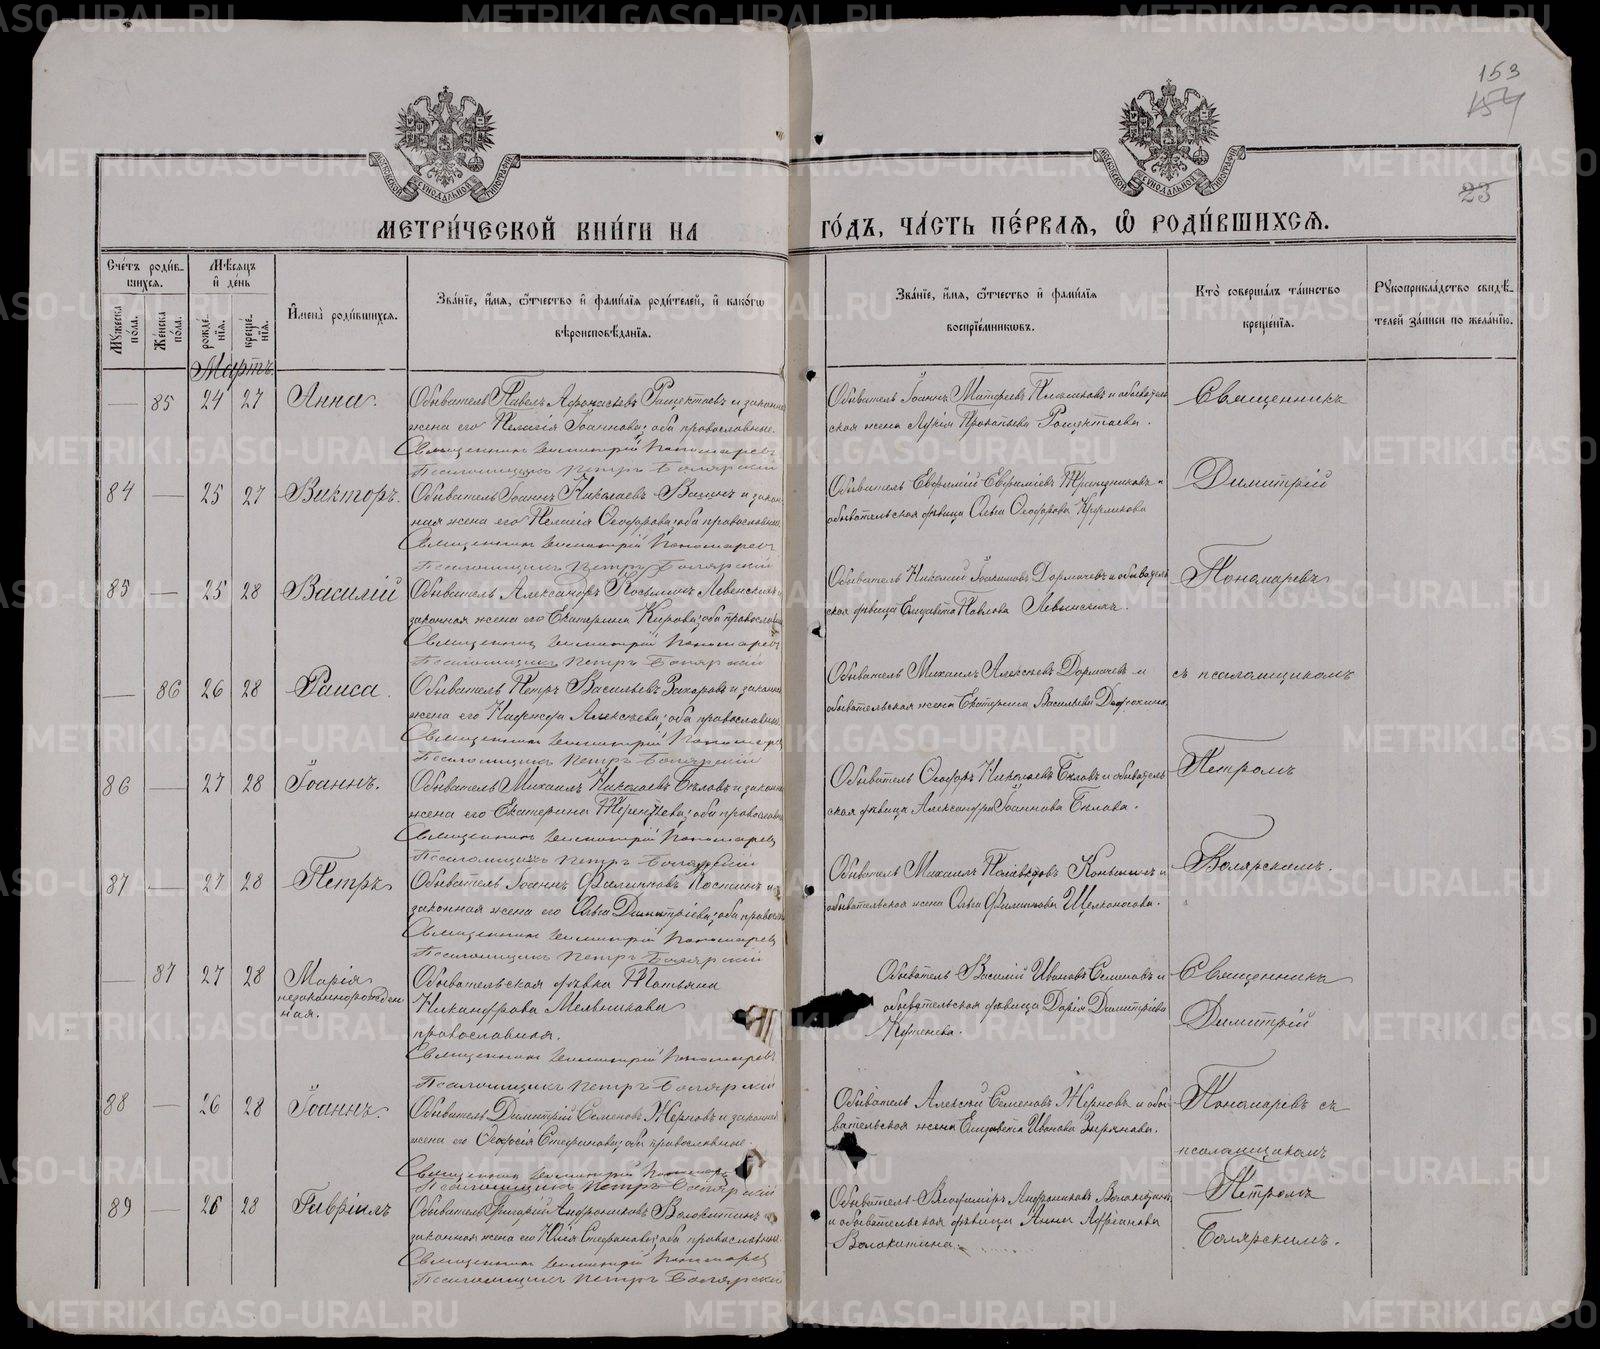 153
154
23
МЕТРИ́ЧЕСКОЙ КНИ́ГИ НА ГО́ДЪ, ЧА́СТЬ ПЕ́РВАЯ, Ѡ҆ РОДИ́ВШИХСЯ.
Сче́тъ роди́вшихся.
Му́жеска по́ла.
Же́нска по́ла.
Мѣ́сяцъ и҆ де́нь
рожде́нїя.
креще́нїя.
И҆мена̀ роди́вшихся.
Зва́нїе, и҆́мя, ѻ҆́тчество и҆ фами́лїя роди́телей, и҆ како́гѡ
вѣроисповѣ́данїя.
Зва́нїе, и҆́мя, ѻ҆́тчество и҆ фами́лїя
воспрїе́мникѡвъ.
Кто̀ соверша́лъ та́инство
креще́нїя.
Рукоприкла́дство свидѣ́телей за́писи по жела́нїю.
Мартъ.
— 85 24 27 Анна.
Обыватель Павелъ Аѳонасьевъ Ращектаевъ и законная
жена его Пелагія Іоаннова; оба православные.
Священникъ Димитрій Пономаревъ
Псаломщикъ Петръ Боярскій
Обыватель Іоаннъ Матѳеевъ и обыватель-
ская жена Прокопьева Ращектаева.
Священникъ
84 — 25 27 Викторъ.
Обыватель Іоаннъ Николаевъ и закон-
ная жена его Пелагія Ѳеодорова; оба православные.
Священникъ Димитрій Пономаревъ
Псаломщикъ Петръ Боярскій
Обыватель Евфимій и
обывательская дѣвица Ольга Ѳеодорова
Димитрій
85 — 25 28 Василій
Обыватель Александръ Косьминъ Левенскихъ и
законная жена его Екатерина Кирова; оба православные
Священникъ Димитрій Пономаревъ
Псаломщикъ Петръ Боярскій
Обыватель Николай Дормачевъ и обыватель-
ская дѣвица Елизавета Павлова
Пономаревъ
— 86 26 28 Раиса.
Обыватель Петръ Васильевъ Захаровъ и законная
жена его Алексѣева; оба православные.
Священникъ Димитрій Пономаревъ
Псаломщикъ Петръ Боярскій
Обыватель Михаилъ Алексѣевъ Дормачевъ и
обывательская жена Екатерина Васильева
съ псаломщикомъ
86 — 27 28 Іоаннъ.
Обыватель Михаилъ Николаевъ Бѣловъ и законная
жена его Екатерина Терентьева; оба православные
Священникъ Димитрій Пономаревъ
Псаломщикъ Петръ Боярскій
Обыватель Ѳеодоръ Николаевъ Бѣловъ и обыватель-
ская дѣвица Александра Іоаннова Бѣлова.
Петромъ
87 — 27 28 Петръ
Обыватель Іоаннъ Филипповъ Костинъ и
законная жена его Ольга Димитріева; оба православные
Священникъ Димитрій Пономаревъ
Псаломщикъ Петръ Боярскій
Обыватель Михаилъ и
обывательская жена Ольга Филиппова Щелконогова.
Боярскимъ.
— 87 27 28 Марія
незаконнорожден-
ная.
Обывательская дѣвка Татьяна
Никандрова Мельникова
православная.
Священникъ Димитрій Пономаревъ
Псаломщикъ Петръ Боярскій
Обыватель Василій Ивановъ Симановъ и
обывательская дѣвица Дарія Димитріева
Священникъ
Димитрій
88 — 26 28 Іоаннъ.
Обыватель Димитрій Семеновъ Жерновъ и законная
жена его Ѳеодосія Стефанова; оба православные.
Священникъ Димитрій Пономаревъ
Псаломщикъ Петръ Боярскій
Обыватель Алексѣй Семеновъ Жерновъ и обы-
вательская жена Елизавета Иванова Зырянова.
Пономаревъ съ
псаломщикомъ
89 — 26 28 Гавріилъ
Обыватель Григорій Андрониковъ Волокитинъ и
законная жена его Юлія Стефанова; оба православные.
Священникъ Димитрій Пономаревъ
Псаломщикъ Петръ Боярскій
Обыватель Владиміръ Андрониковъ Волокитинъ
и обывательская дѣвица Анна Адріанова
Волокитина.
Петромъ
Боярскимъ.
METRIKI.GASO-URAL.RU